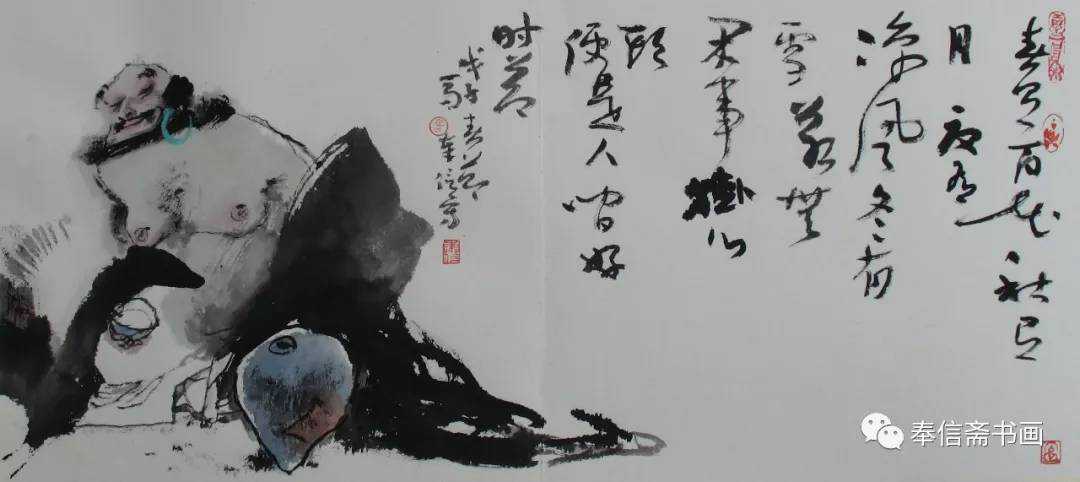 春有百花秋有
月夏有
凉风冬有
雪若無
闲事掛心
頭
便是人间好
时节
戊子春节
馬奉信写
奉信斋书画